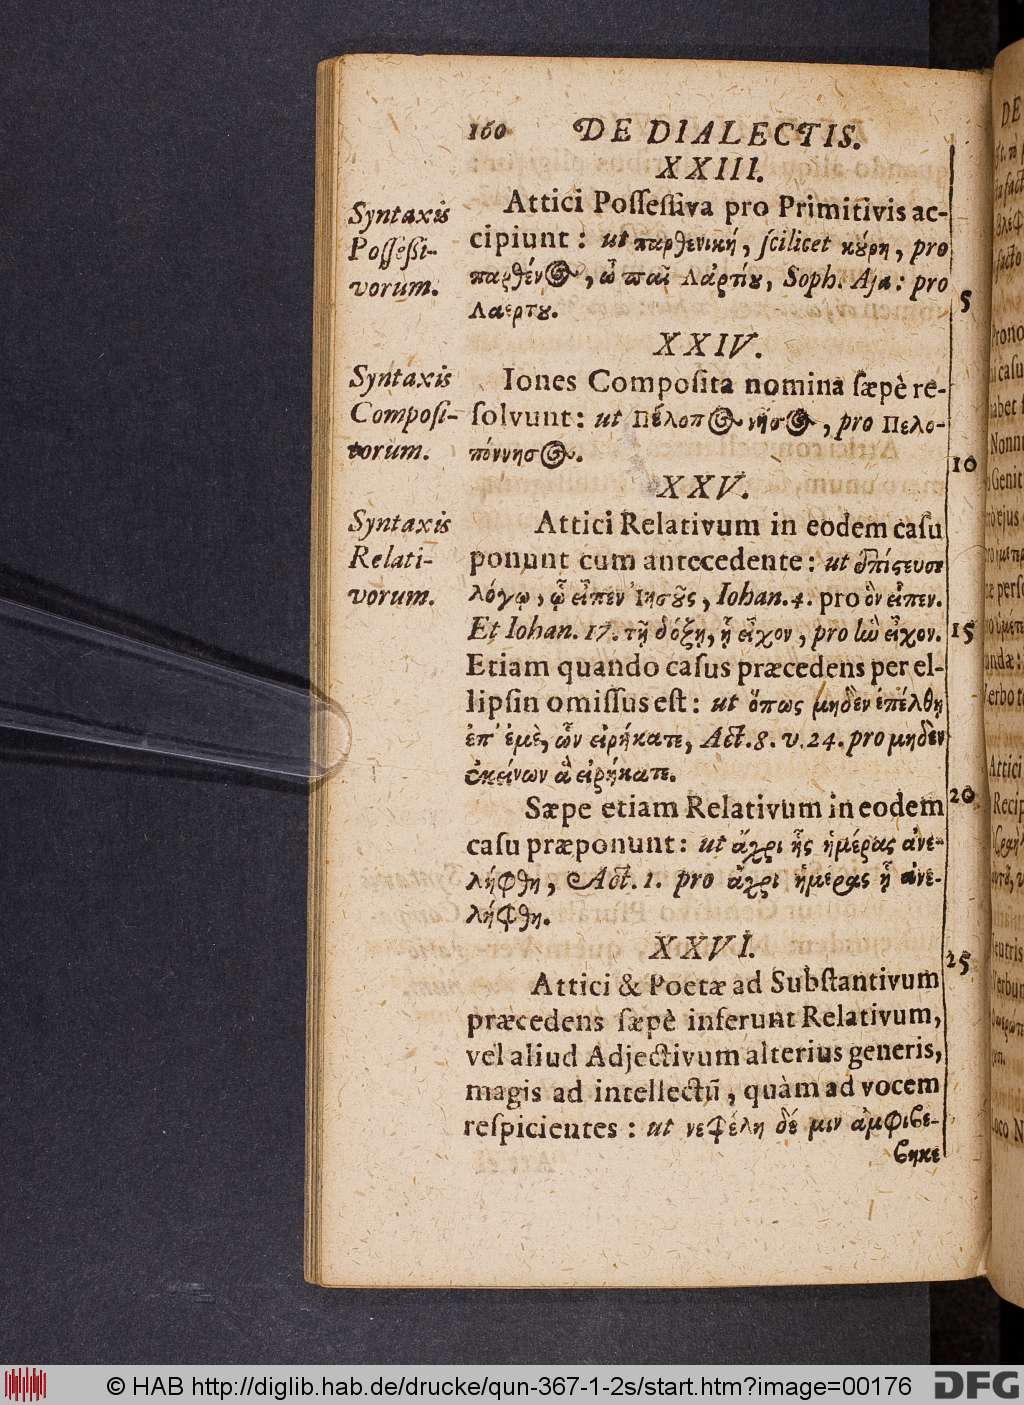 160 DE DIALECTIS.
XXIII.
Syntaxis
Possessi-
vorum.
Attici Possessiva pro Primitivis ac-
cipiunt : ut παρθενικὴ, scilicet κύρη, pro
παρθένος, ὦ παῖ Λαρτίου, Soph. Aja: pro
Λαερτου.
XXIV.
Syntaxis
Composi-
torum.
Iones Composita nomina sæpè re-
solvunt : ut Πέλοπος νῆσος, pro Πελο-
πόννησος.
XXV.
Syntaxis
Relati-
vorum.
Attici Relativum in eodem casu
ponunt cum antecedente : ut ἐπίστευσε
λόγῳ, ᾧ εἶπεν Ἰησοῦς, Iohan. 4. pro ὃν εἶπεν.
Et Iohan. 17. τῇ δόξῃ, ᾗ εἶχον, pro ἣν εἶχον.
Etiam quando casus præcedens per el-
lipsin omissus est : ut ὅπως μηδὲν ἐπέλθῃ
ἐπ' ἐμὲ, ὧν εἰρήκατε, Act. 8. v. 24. pro μηδὲν
ἐκείνων ἃ εἰρήκατε.
Sæpe etiam Relativum in eodem
casu præponunt : ut ἄχρι ἧς ἡμέρας ἀνε-
λήφθη, Act. 1. pro ἄχρι ἡμέρας ᾗ ἀνε-
λήφθη.
XXVI.
Attici & Poetæ ad Substantivum
præcedens sæpè inserunt Relativum,
vel aliud Adjectivum alterius generis,
magis ad intellectū, quàm ad vocem
respicientes : ut νεφέλη δέ μιν ἀμφιβέ-
βηκε
5
10
15
20
25
© HAB http://diglib.hab.de/drucke/qun-367-1-2s/start.htm?image=00176
DFG